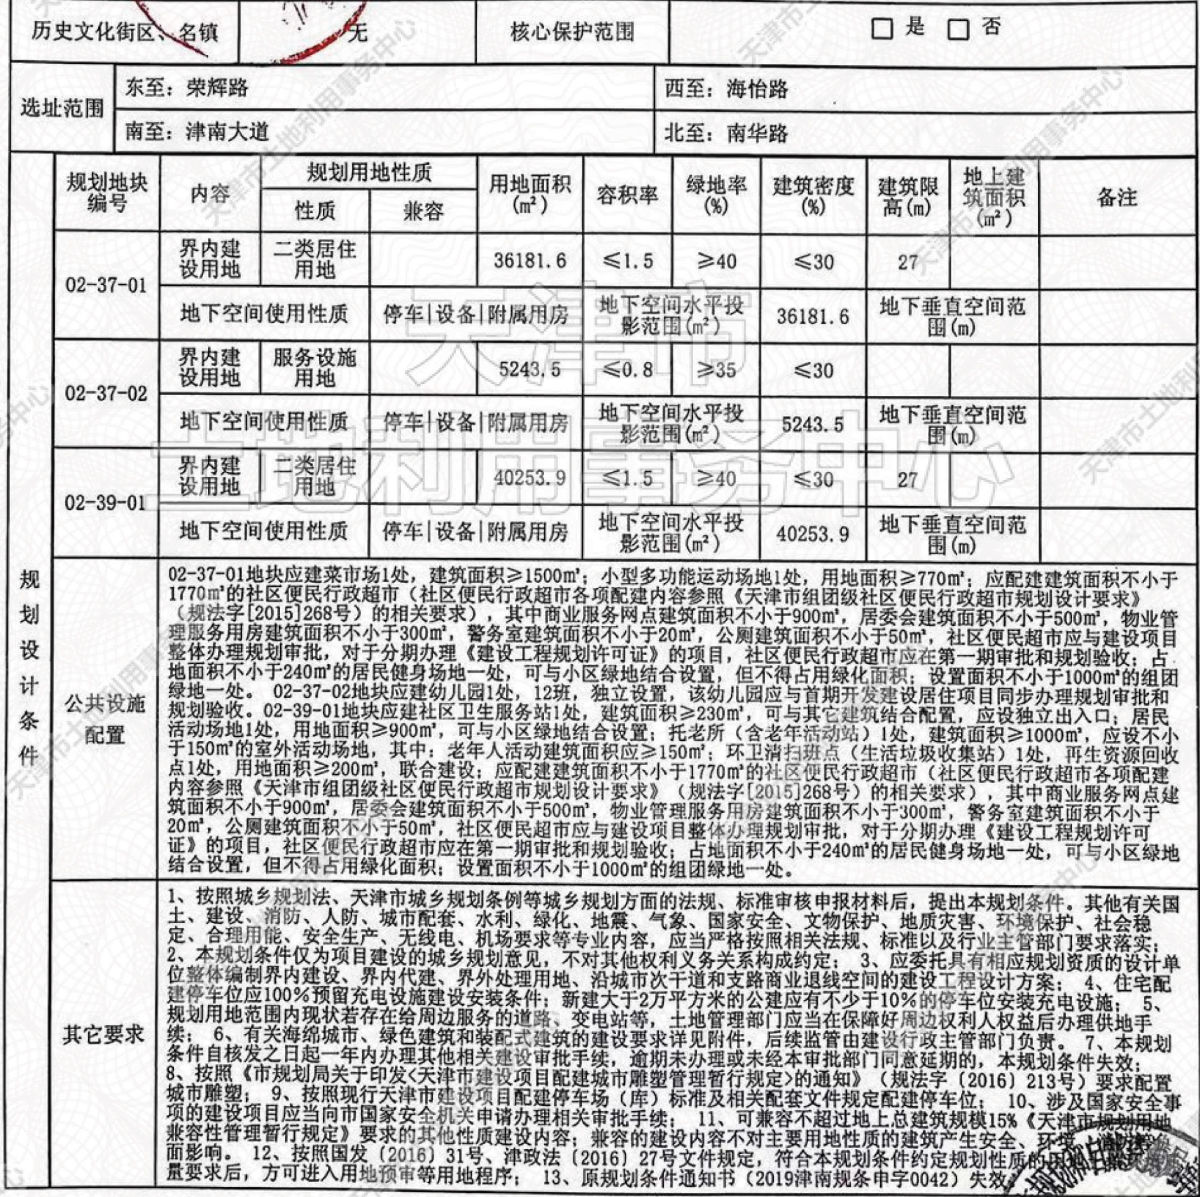 历史文化街区、名镇 无 核心保护范围 □ 是 □ 否
选址范围 东至：荣辉路 西至：海怡路
南至：津南大道 北至：南华路
规划设计条件
规划地块编号 内容 规划用地性质 用地面积(㎡) 容积率 绿地率(%) 建筑密度(%) 建筑限高(m) 地上建筑面积(㎡) 备注
性质 兼容
02-37-01 界内建设用地 二类居住用地 36181.6 ≤1.5 ≥40 ≤30 27
地下空间使用性质 停车|设备|附属用房 地下空间水平投影范围(㎡) 36181.6 地下垂直空间范围(m)
02-37-02 界内建设用地 服务设施用地 5243.5 ≤0.8 ≥35 ≤30
地下空间使用性质 停车|设备|附属用房 地下空间水平投影范围(㎡) 5243.5 地下垂直空间范围(m)
02-39-01 界内建设用地 二类居住用地 40253.9 ≤1.5 ≥40 ≤30 27
地下空间使用性质 停车|设备|附属用房 地下空间水平投影范围(㎡) 40253.9 地下垂直空间范围(m)
公共设施配置
02-37-01地块应建菜市场1处，建筑面积≥1500㎡；小型多功能运动场地1处，用地面积≥770㎡；应配建建筑面积不小于
1770㎡的社区便民行政超市（社区便民行政超市各项配建内容参照《天津市组团级社区便民行政超市规划设计要求》
（规法字[2015]268号）的相关要求），其中商业服务网点建筑面积不小于900㎡，居委会建筑面积不小于500㎡，物业管
理服务用房建筑面积不小于300㎡，警务室建筑面积不小于20㎡，公厕建筑面积不小于50㎡，社区便民超市应与建设项目
整体办理规划审批，对于分期办理《建设工程规划许可证》的项目，社区便民行政超市应在第一期审批和规划验收；占
地面积不小于240㎡的居民健身场地一处，可与小区绿地结合设置，但不得占用绿化面积；设置面积不小于1000㎡的组团
绿地一处。 02-37-02地块应建幼儿园1处，12班，独立设置，该幼儿园应与首期开发建设居住项目同步办理规划审批和
规划验收。02-39-01地块应建社区卫生服务站1处，建筑面积≥230㎡，可与其它建筑结合配置，应设独立出入口；居民
活动场地1处，用地面积≥900㎡，可与小区绿地结合设置；托老所（含老年活动站）1处，建筑面积≥1000㎡，应设不小
于150㎡的室外活动场地，其中：老年人活动建筑面积应≥150㎡；环卫清扫班点（生活垃圾收集站）1处，再生资源回收
点1处，用地面积≥200㎡，联合建设；应配建建筑面积不小于1770㎡的社区便民行政超市（社区便民行政超市各项配建
内容参照《天津市组团级社区便民行政超市规划设计要求》（规法字[2015]268号）的相关要求），其中商业服务网点建
筑面积不小于900㎡，居委会建筑面积不小于500㎡，物业管理服务用房建筑面积不小于300㎡，警务室建筑面积不小于
20㎡，公厕建筑面积不小于50㎡，社区便民超市应与建设项目整体办理规划审批，对于分期办理《建设工程规划许可
证》的项目，社区便民行政超市应在第一期审批和规划验收；占地面积不小于240㎡的居民健身场地一处，可与小区绿地
结合设置，但不得占用绿化面积；设置面积不小于1000㎡的组团绿地一处。
其它要求
1、按照城乡规划法、天津市城乡规划条例等城乡规划方面的法规、标准审核申报材料后，提出本规划条件。其他有关国
土、建设、消防、人防、城市配套、水利、绿化、地震、气象、国家安全、文物保护、地质灾害、环境保护、社会稳
定、合理用能、安全生产、无线电、机场要求等专业内容，应当严格按照相关法规、标准以及行业主管部门要求落实；
2、本规划条件仅为项目建设的城乡规划意见，不对其他权利义务关系构成约定； 3、应委托具有相应规划资质的设计单
位整体编制界内建设、界内代建、界外处理用地、沿城市次干道和支路商业退线空间的建设工程设计方案； 4、住宅配
建停车位应100%预留充电设施建设安装条件；新建大于2万平方米的公建应有不少于10%的停车位安装充电设施； 5、
规划用地范围内现状若存在给周边服务的道路、变电站等，土地管理部门应当在保障好周边权利人权益后办理供地手
续； 6、有关海绵城市、绿色建筑和装配式建筑的建设要求详见附件，后续监管由建设行政主管部门负责。 7、本规划
条件自核发之日起一年内办理其他相关建设审批手续，逾期未办理或未经本审批部门同意延期的，本规划条件失效；
8、按照《市规划局关于印发<天津市建设项目配建城市雕塑管理暂行规定>的通知》（规法字〔2016〕213号）要求配置
城市雕塑； 9、按照现行天津市建设项目配建停车场（库）标准及相关配套文件规定配建停车位； 10、涉及国家安全事
项的建设项目应当向市国家安全机关申请办理相关审批手续； 11、可兼容不超过地上总建筑规模15%《天津市规划用地
兼容性管理暂行规定》要求的其他性质建设内容；兼容的建设内容不对主要用地性质的建筑产生安全、环境
面影响。 12、按照国发〔2016〕31号、津政法〔2016〕27号文件规定，符合本规划条件约定规划性质的
量要求后，方可进入用地预审等用地程序； 13、原规划条件通知书（2019津南规条申字0042）失效
天津市
土地利用事务中心
天津市土地利用事务中心